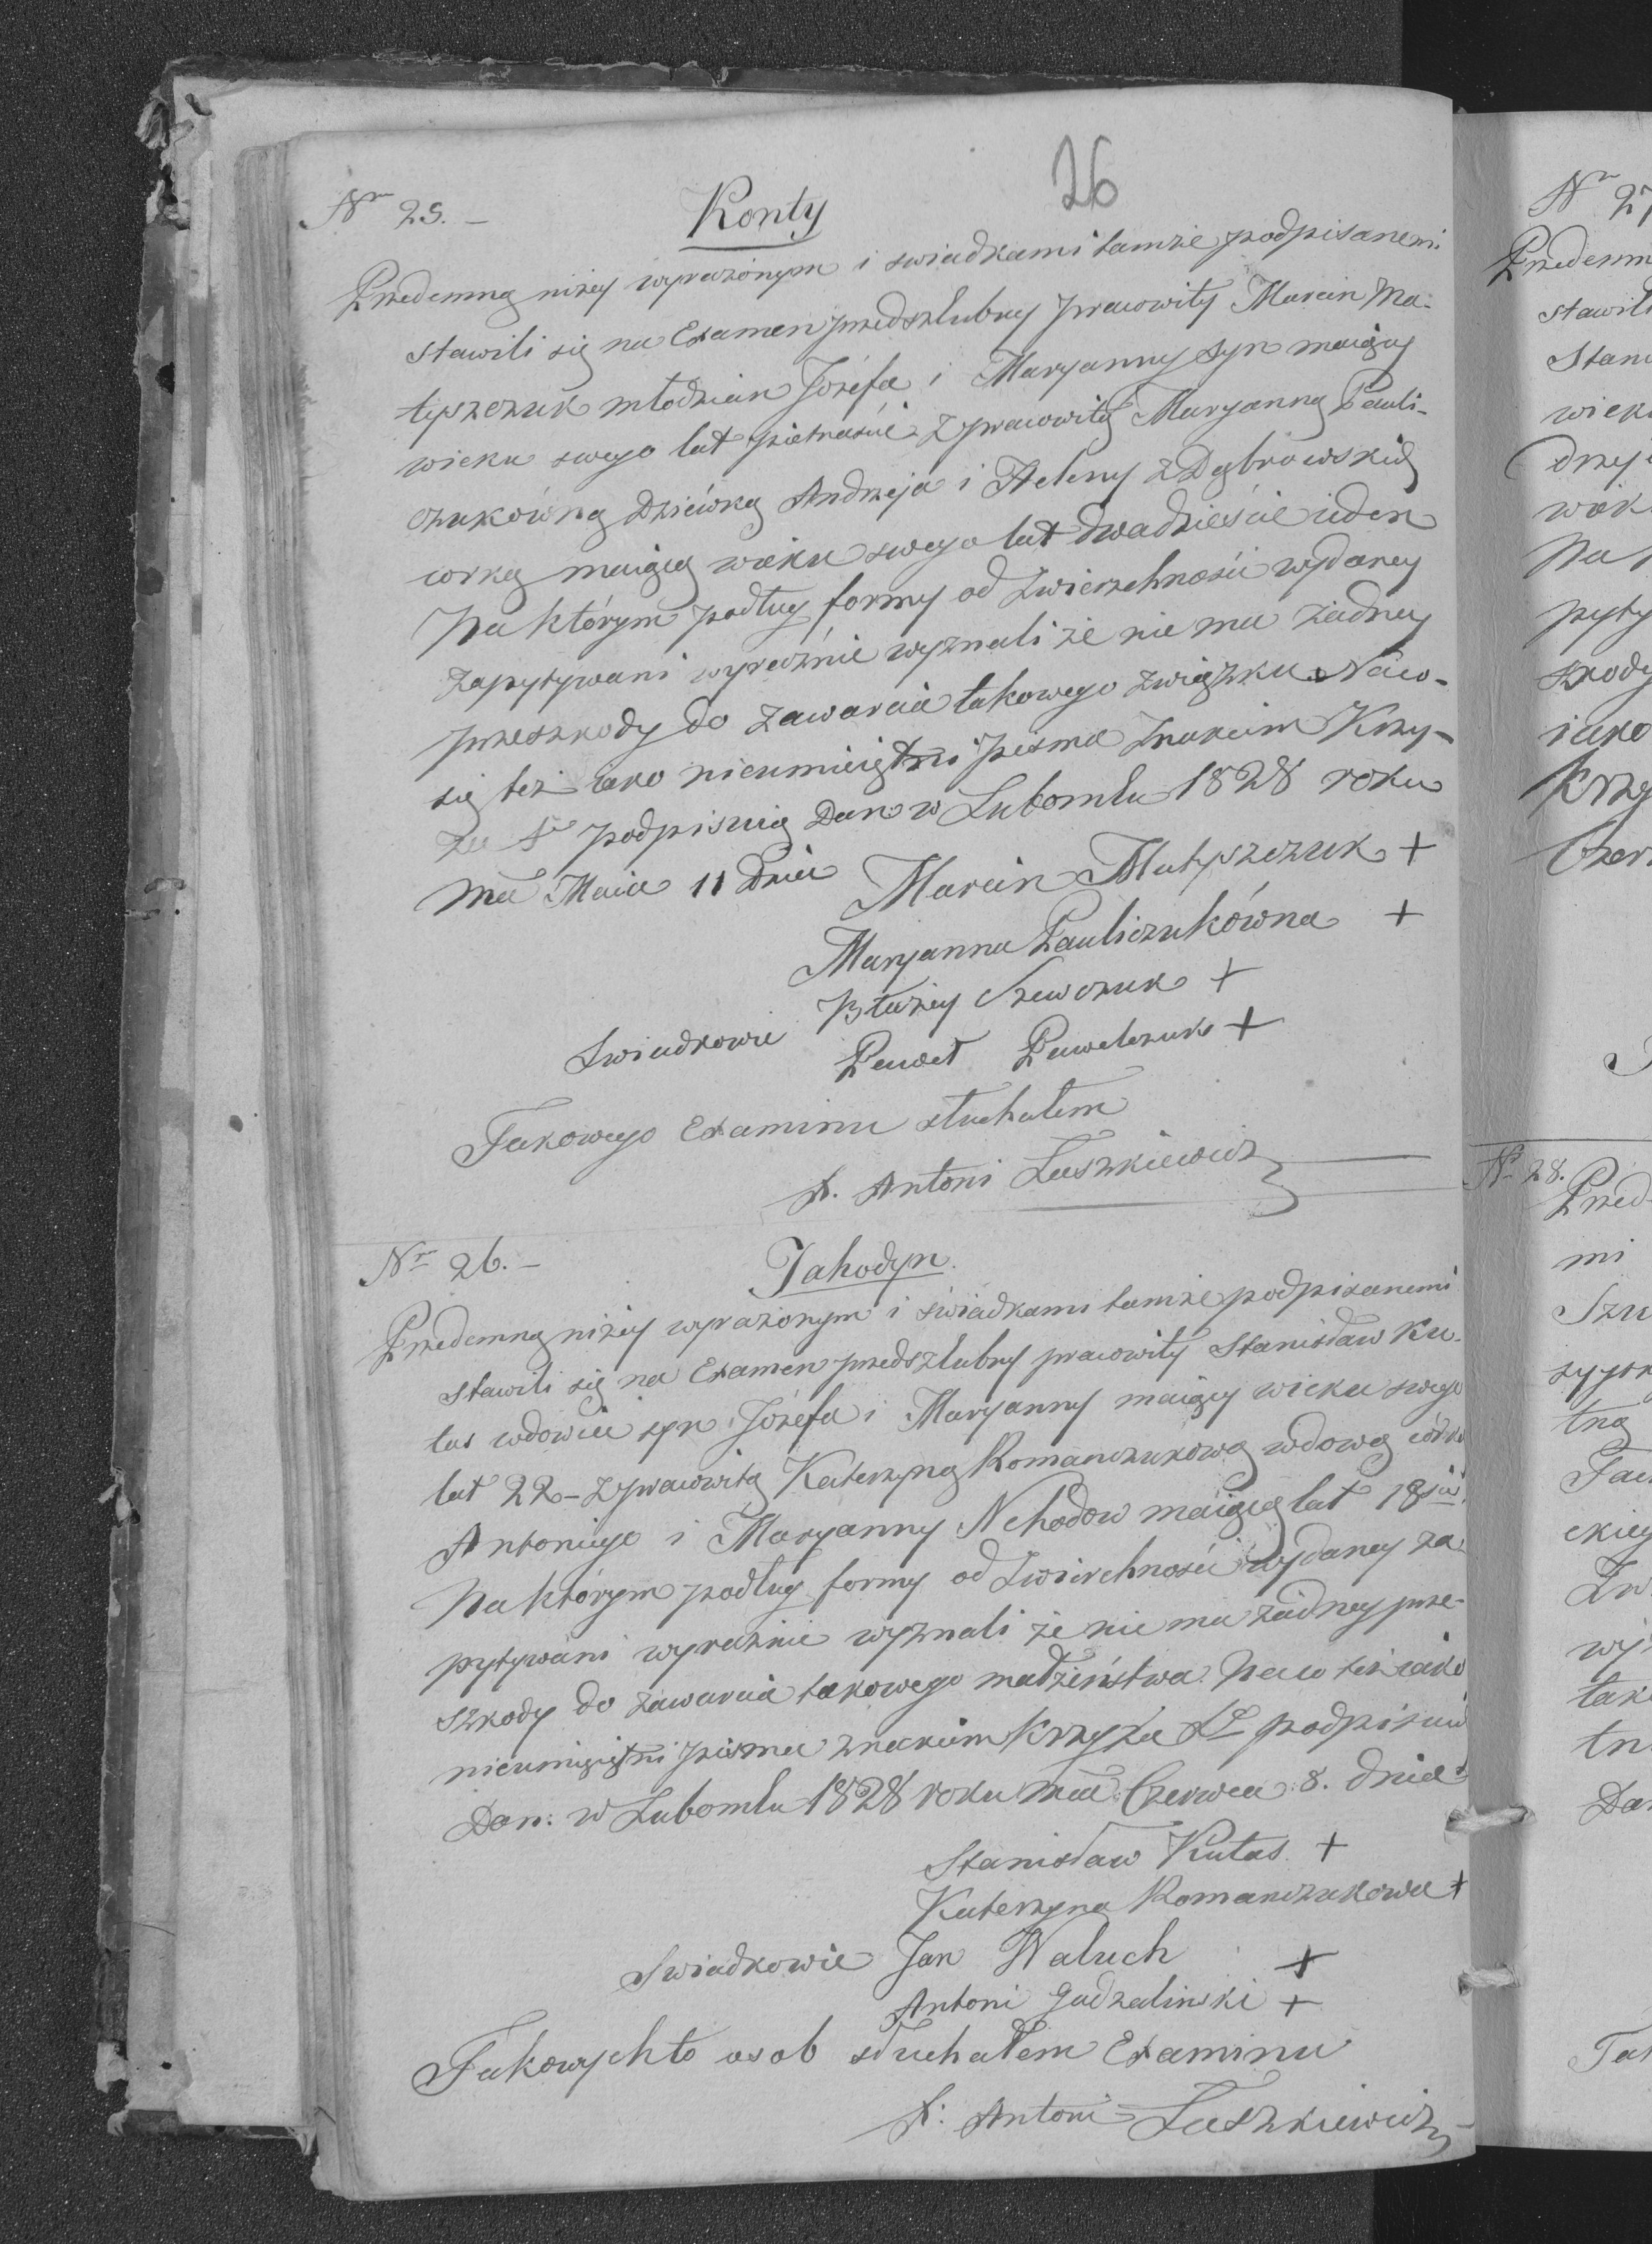 26
Nr 25. – Konty
Przedemną niżey wyrażonym i swiadkami tamże podpisanemi
stawili się na Examen przedszlubny pracowity Marcin Ma-
tyszczuk młodzian Józefa i Maryanny syn maiący
wieku swego lat pietnaście z pracowitą Maryanną Pauli-
czukówną Dziéwką Andrzeja i Heleny z Dąbrowskich
corką maiącą wieku swego lat dwadzieście ieden
Na którym podług formy od Zwierzchności wydaney
zapytywani wyraźnie wyznali że nie ma żadney
przeszkody do zawarcia takowego związku. Na co
się też iako nieumieiętni pisma znakiem Krzy-
ża S° podpisuią Dan w Lubomlu 1828 roku
mca Maia 11 dnia
Marcin Matyszczuk +
Maryanna Pauliczukówna +
Swiadkowie Błażey Szewczuk +
Paweł Pawelczuk +
Takowego Examinu słuchałem
X. Antoni Laszkiewicz
Nr 26. – Jahodyn
Przedemną niżey wyrażonym i świadkami tamże podpisanemi
stawili się na Examen przedszlubny pracowity Stanisław Ku-
tas wdowiec syn Józefa i Maryanny maiący wieku swego
lat 22 – z pracowitą Katerzyną Romanczukową wdową córką
Antoniego i Maryanny Nehodow maiącą lat 18
Na którym podług formy od Zwierchności wydaney za-
pytywani wyraźnie wyznali że nie ma żadney prze-
szkody do zawarcia takowego małżeństwa. Na co też iako
nieumieiętni pisma znakiem Krzyża S° podpisuią
Dan: w Lubomlu 1828 roku mca Czerwca 8. dnia
Stanisław Kutas +
Katerzyna Romanczukowa +
Swiadkowie Jan Waluch +
Antoni Gadzalinski +
Takowychto osob słuchałem Examinu
X: Antoni Laszkiewicz
Nr 27
Przedemn
stawili
Stani
wieku
drzej
Na
pyty
szkody
iako
Krzy
Czer
Nr 28.
Przed
mi
Szu
tną
ckiey
wy
tak
tn
Dan
Tak